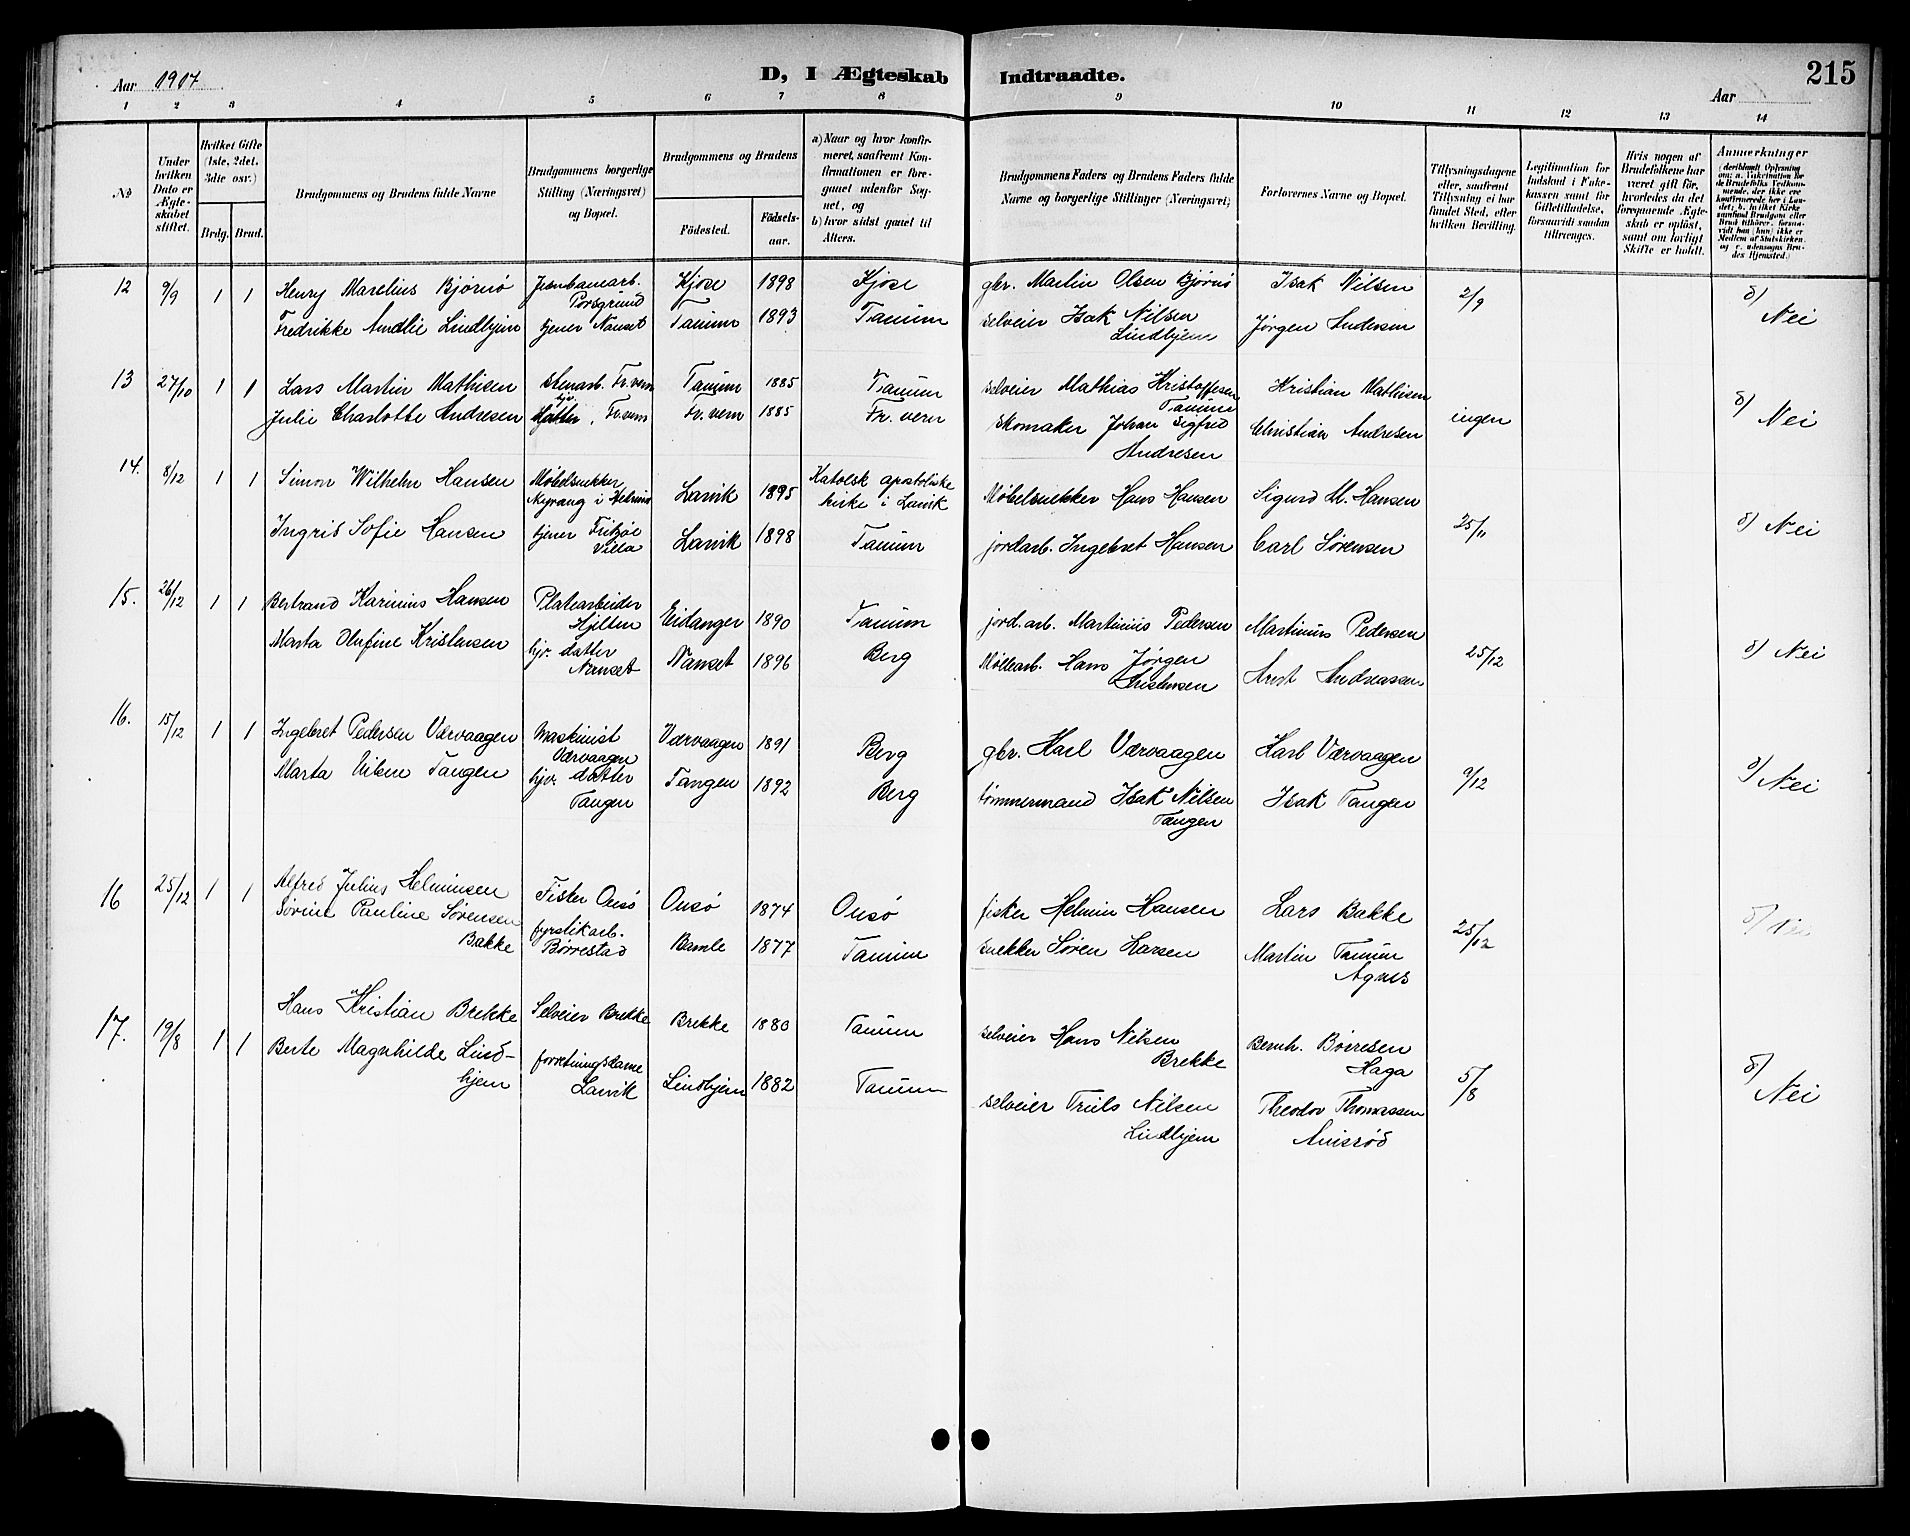 Aar 1917
D, I Ægteskab Indtraadte.
215
Aar
1 2 3 4 5 6 7 8 9 10 11 12 13 14
No
Under hvilken Dato er Ægteskabet stiftet.
Hvilket Gifte (1ste, 2det, 3die osv.)
Brdg. Brud.
Brudgommens og Brudens fulde Navne
Brudgommens borgerlige Stilling (Næringsvei) og Bopæl.
Brudgommens og Brudens
Födested. Födselsaar.
a) Naar og hvor konfirmeret, saafremt Konfirmationen er foregaaet udenfor Sognet, og
b) hvor sidst gaaet til Alters.
Brudgommens Faders og Brudens Faders fulde Navne og borgerlige Stillinger (Næringsvei)
Forlovernes Navne og Bopæl.
Tillysningsdagene eller, saafremt Tillysning ei har fundet Sted, efter hvilken Bevilling.
Legitimation for Indskud i Enkekassen samt for Giftetilladelse, forsaavidt saadan tiltrænges.
Hvis nogen af Brudefolkene har været gift för, hvorledes da det foregaaende Ægteskab er oplöst, samt om lovligt Skifte er holdt.
Anmærkninger
12 9/9 1 1 Henry Marelius Bjørnø Jernbanearb. Porsgrund Kjose 1898 Kjose gbr. Martin Olsen Bjørnø Isak Nilsen 2/9 b) Nei
Fredrikke Amalie Lindhjem tjener Nanset Tanum 1893 Tanum selveier Isak Nilsen Lindhjem Jørgen Andersen
13 27/10 1 1 Lars Martin Mathisen stenarb. Fr.vern Tanum 1885 Tanum selveier Mathias Kristoffersen Tanum Kristian Mathisen ingen b) Nei
Julie Charlotte Andresen Fr.vern Fr. vern 1885 Fr. vern Skomaker Johan Sigfred Andresen Christian Andresen
14. 8/12 1 1 Simon Wilhelm Hansen Møbelsnekker Larvik 1895 Katolsk apostoliske kirke i Larvik Møbelsnekker Hans Hansen Sigurd M. Hansen 25/11 b) Nei
Ingrid Sofie Hansen tjener Fritzøe Villa Larvik 1898 Tanum jordarb. Ingebret Hansen Carl Sørensen
15. 26/12 1 1 Bertrand Karinius Hansen Platearbeider Hjelten Eidanger 1890 Tanum jord.arb. Martinius Pedersen Martinius Pedersen 25/12 b) Nei
Marta Olufine Kristensen hjv. datter Nanset Nanset 1896 Berg Møllearb. Hans Jørgen Kristensen Andreassen
16. 15/12 1 1 Ingebret Pedersen Værvaagen Maskinist Værvaagen Værvaagen 1891 Berg gbr. Karl Værvaagen Karl Værvaagen 9/12 b) Nei
Marta Tangen hjv. datter Tangen Tangen 1892 Berg tømmermand Isak Nilsen Tangen Isak Tangen
16 25/12 1 1 Alfred Julius Helminsen Fisker Onsø Onsø 1874 Onsø fisker Helmin Hansen Lars Bakke 25/12 b) Nei
Sørine Pauline Sørensen Bakke fyrstikarb. Børrestad Bamle 1877 Tanum snekker Søren Larsen Martin Tanum Agnes
17. 19/8 1 1 Hans Kristian Brekke Selveier Brekke Brekke 1880 Tanum selveier Hans Nilsen Brekke Bernh. Børresen Haga 5/8 b) Nei
Berte Magnhilde Lindhjem forretningsdame Larvik Lindhjem 1882 Tanum selveier Truls Nilsen Lindhjem Theodor Thomassen Amisrød